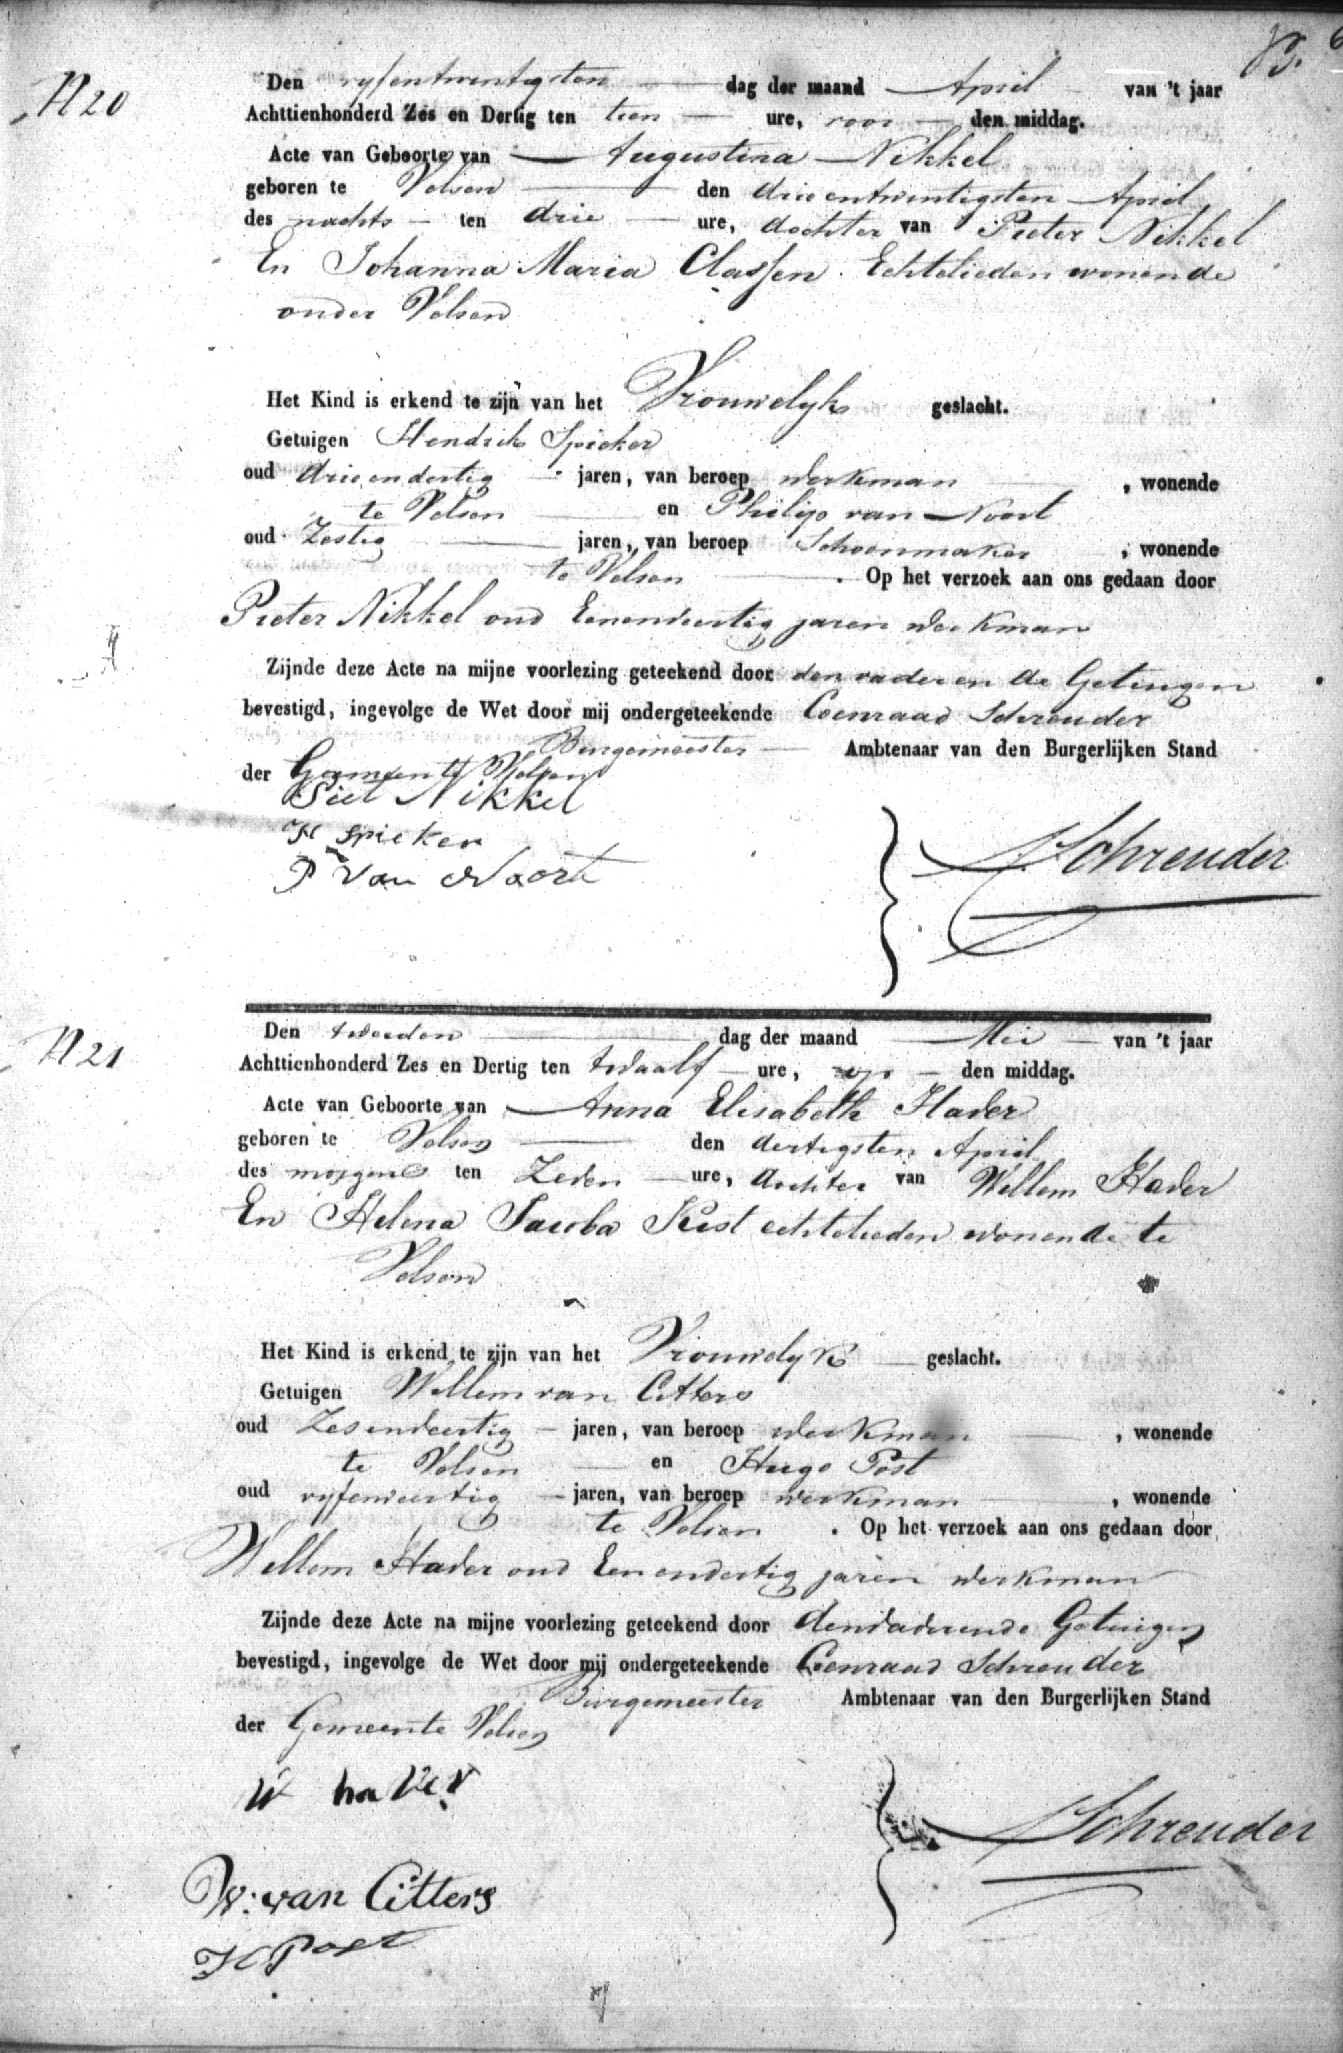 N 20
Den vyfentwintigsten dag der maand April van 't jaar
Achttienhonderd Zes en Dertig ten tien ure, voor den middag.
Acte van Geboorte van Augustina Nikkel
geboren te Velsen den drieentwintigsten April
des nachts ten drie ure, dochter van Pieter Nikkel
En Johanna Maria Classen Echtelieden wonende
onder Velsen
Het Kind is erkend te zijn van het Vrouwelyk geslacht.
Getuigen Hendrik Spieker
oud drieendertig jaren, van beroep werkman, wonende
te Velsen en Philip van Noort
oud Zestig jaren, van beroep Schoenmaker, wonende
te Velsen. Op het verzoek aan ons gedaan door
Pieter Nikkel oud Eenenveertig jaren werkman
Zijnde deze Acte na mijne voorlezing geteekend door den vader en de Getuigen
bevestigd, ingevolge de Wet door mij ondergeteekende Coenraad Schreuder
Burgemeester Ambtenaar van den Burgerlijken Stand
der Gemeente Velsen
Piet Nikkel
H Spieker
P van Noort
Schreuder
N 21
Den tweeden dag der maand Mei van 't jaar
Achttienhonderd Zes en Dertig ten twaalf ure, op den middag.
Acte van Geboorte van Anna Elisabeth Haver
geboren te Velsen den dertigsten April
des morgens ten Zeven ure, dochter van Willem Haver
En Helena Jacoba Kist echtelieden wonende te
Velsen
Het Kind is erkend te zijn van het Vrouwelyk geslacht.
Getuigen Willem van Citters
oud Zesenveertig jaren, van beroep werkman, wonende
te Velsen en Hugo Post
oud vyfenveertig jaren, van beroep werkman, wonende
te Velsen. Op het verzoek aan ons gedaan door
Willem Haver oud Eenendertig jaren werkman
Zijnde deze Acte na mijne voorlezing geteekend door den vader en de Getuigen
bevestigd, ingevolge de Wet door mij ondergeteekende Coenraad Schreuder
Burgemeester Ambtenaar van den Burgerlijken Stand
der Gemeente Velsen
W haver
Schreuder
W: van Citters
H Post